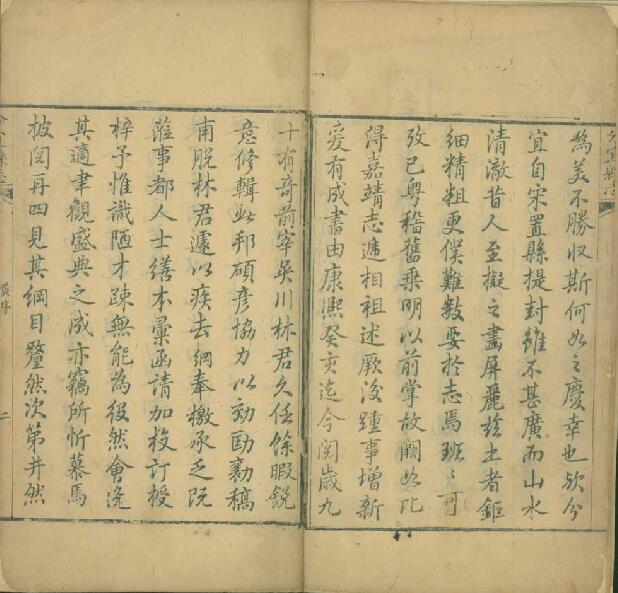 為美不勝収斯何如之慶幸也欤分
宜自宋置縣提封雖不甚廣而山水
清澈昔人至擬之畫屏麗玆土者鉅
細精粗更僕難數要於志焉班〻可
攷已粤稽舊乗明以前掌故闕如氾
得嘉靖志遞相祖述厥後踵事增新
爰有成書由康熙癸亥迄今閱歲九
十有奇前宰吳川林君久任餘暇銳
意修輯此邦碩彥協力以勷勖襄稿
甫脫林君遽以疾去綱奉檄承乏既
蒞事都人士繕本彙函請加校訂授
梓予惟識陋才疎無能為役然會逢
其適聿觀盛典之成亦竊所忻慕焉
披閱再四見其綱目釐然次第井然
分宜縣志
黃序
二